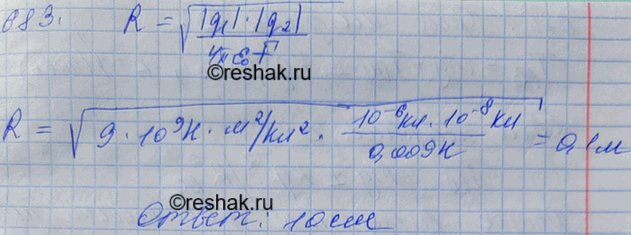 683. R = √(|q₁|·|q₂| / 4πε₀F)
©reshak.ru
R = √(9·10⁹Н·м²/Кл² · 10⁻⁶Кл·10⁻⁸Кл / 0,009Н) = 0,1м
©reshak.ru
Ответ: 10см